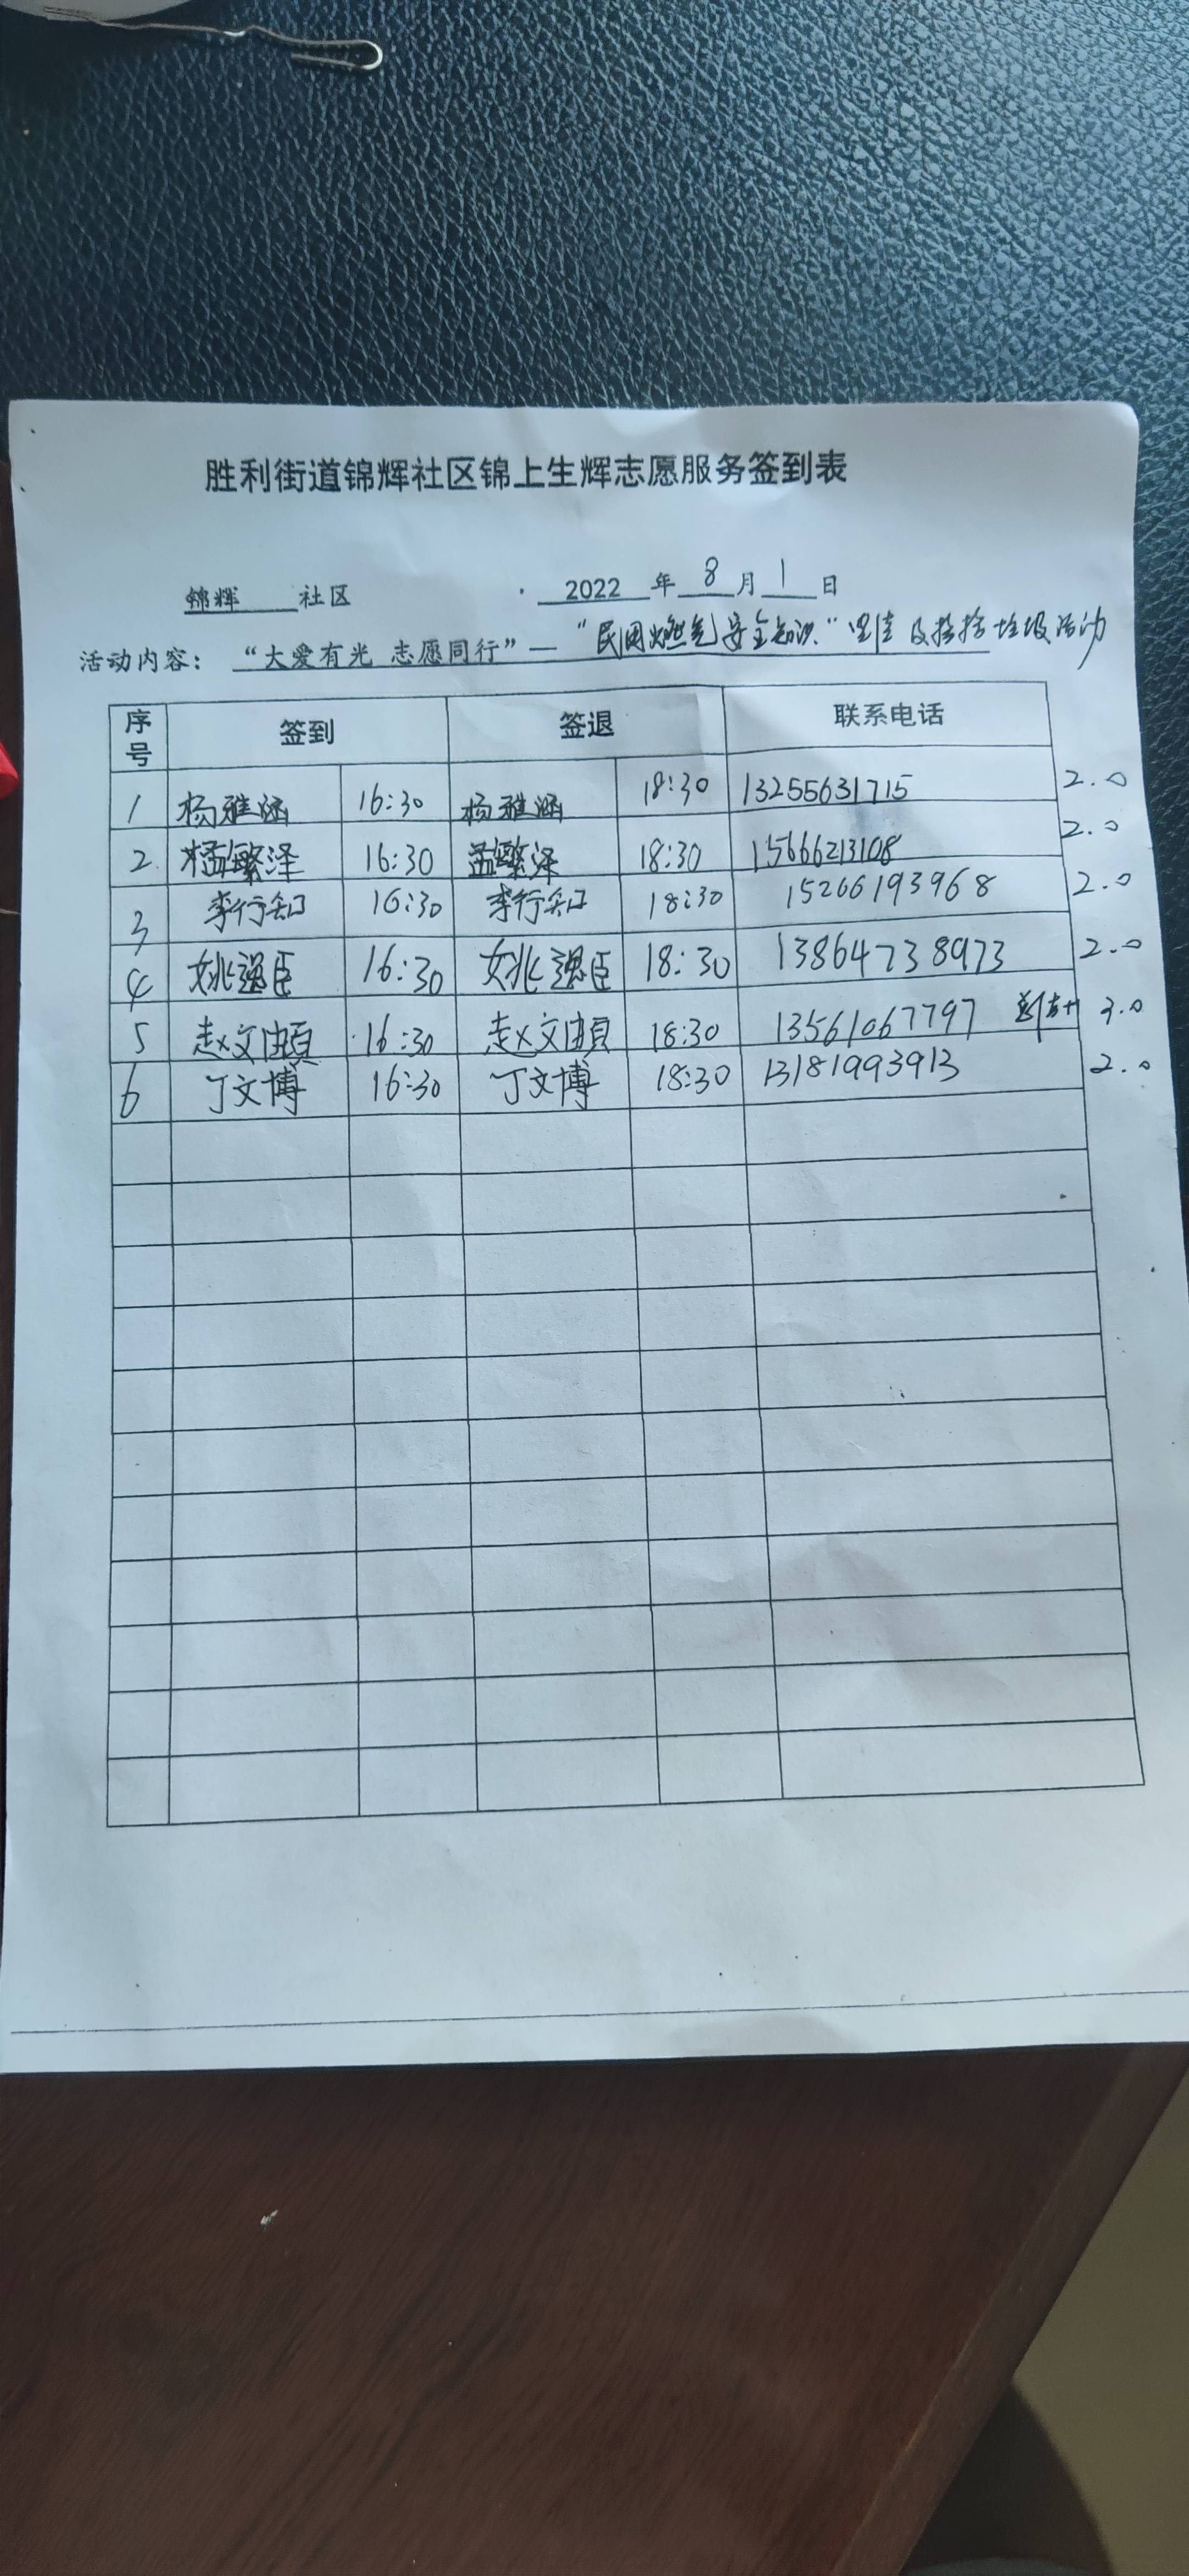 胜利街道锦辉社区锦上生辉志愿服务签到表
锦辉 社区 2022 年 8 月 1 日
活动内容: “大爱有光 志愿同行”—“民用燃气安全知识”宣传及捡拾垃圾活动
序号 签到 签退 联系电话
1 杨雅涵 16:30 杨雅涵 18:30 13255631715 2.0
2. 孟繁泽 16:30 孟繁泽 18:30 15666213108 2.0
3 李行知 16:30 李行知 18:30 15266193968 2.0
4 姚臣 16:30 姚臣 18:30 13864738973 2.0
5 赵文 16:30 赵文 18:30 13561067797 3.0
6 丁文博 16:30 丁文博 18:30 13181993913 2.0